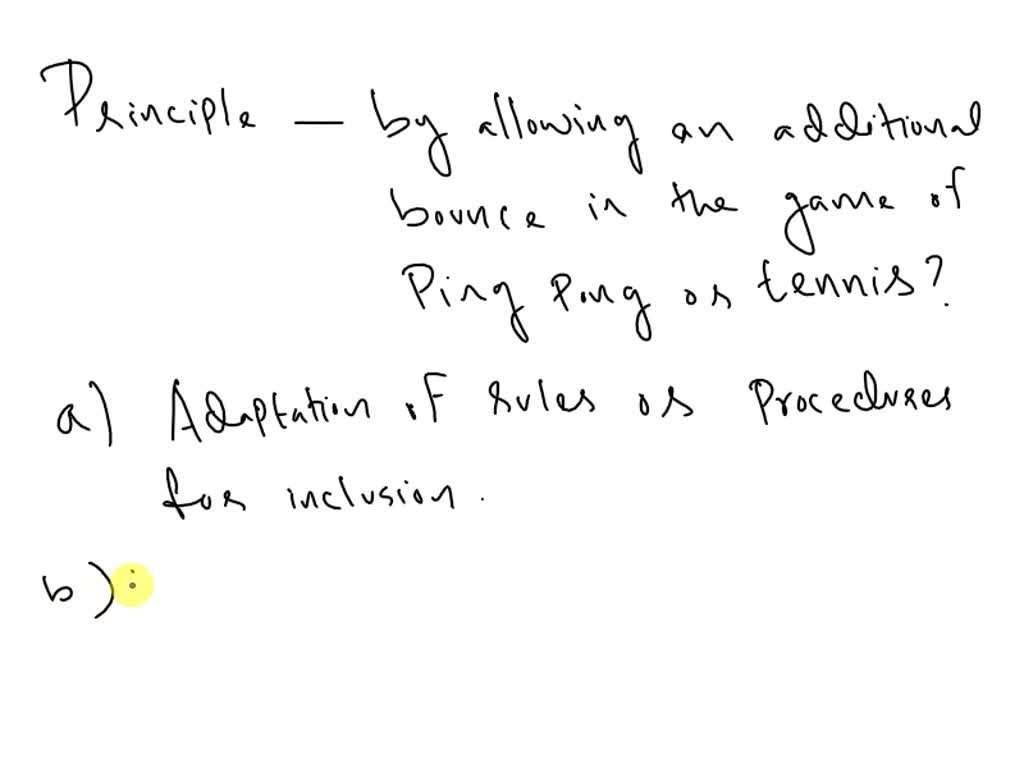 Principle — by allowing an additional
bounce in the game of
Ping Pong or tennis?
a) Adaptation of rules or Procedures
for inclusion.
b)